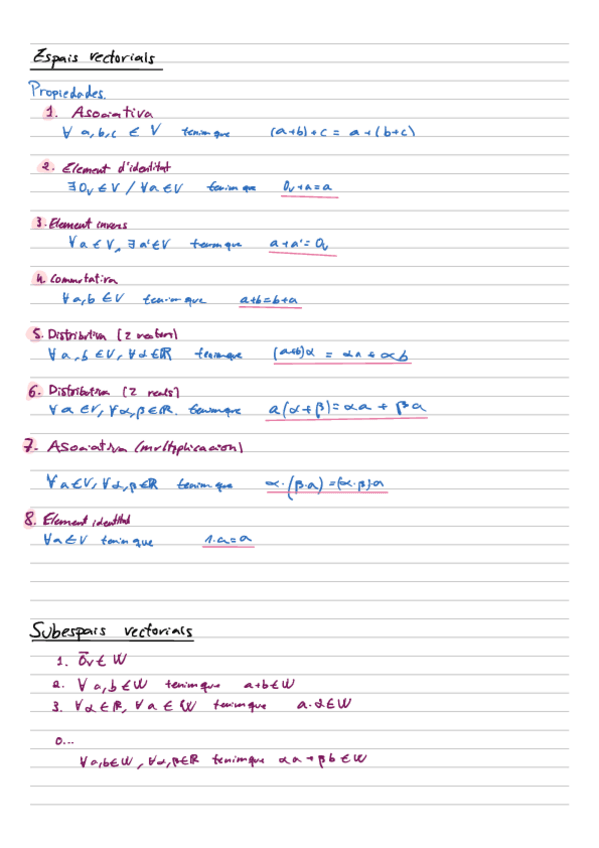 Espais vectorials
Propiedades.
1. Asociativa
∀ a,b,c ∈ V tenim que (a+b)+c = a+(b+c)
2. Element d'identitat
∃ 0ᵥ ∈ V / ∀a ∈ V tenim que 0ᵥ+a=a
3. Element invers
∀a ∈ V, ∃ a' ∈ V tenim que a+a'=0ᵥ
4. Commutativa
∀a,b ∈ V tenim que a+b=b+a
5. Distributiva (2 vectors)
∀ a,b ∈ V, ∀α ∈ ℝ tenim que (a+b)α = αa + αb
6. Distributiva (2 reals)
∀a ∈ V, ∀α,β ∈ ℝ. tenim que a(α+β)=αa + βa
7. Asociativa (multiplicacion)
∀a ∈ V, ∀α,β ∈ ℝ tenim que α·(β·a)=(α·β)·a
8. Element identitat
∀a ∈ V tenim que 1·a=a
Subespais vectorials
1. 0⃗ᵥ ∈ W
2. ∀ a,b ∈ W tenim que a+b ∈ W
3. ∀α ∈ ℝ, ∀a ∈ W tenim que a·α ∈ W
o...
∀a,b ∈ W, ∀α,β ∈ ℝ tenim que αa+βb ∈ W